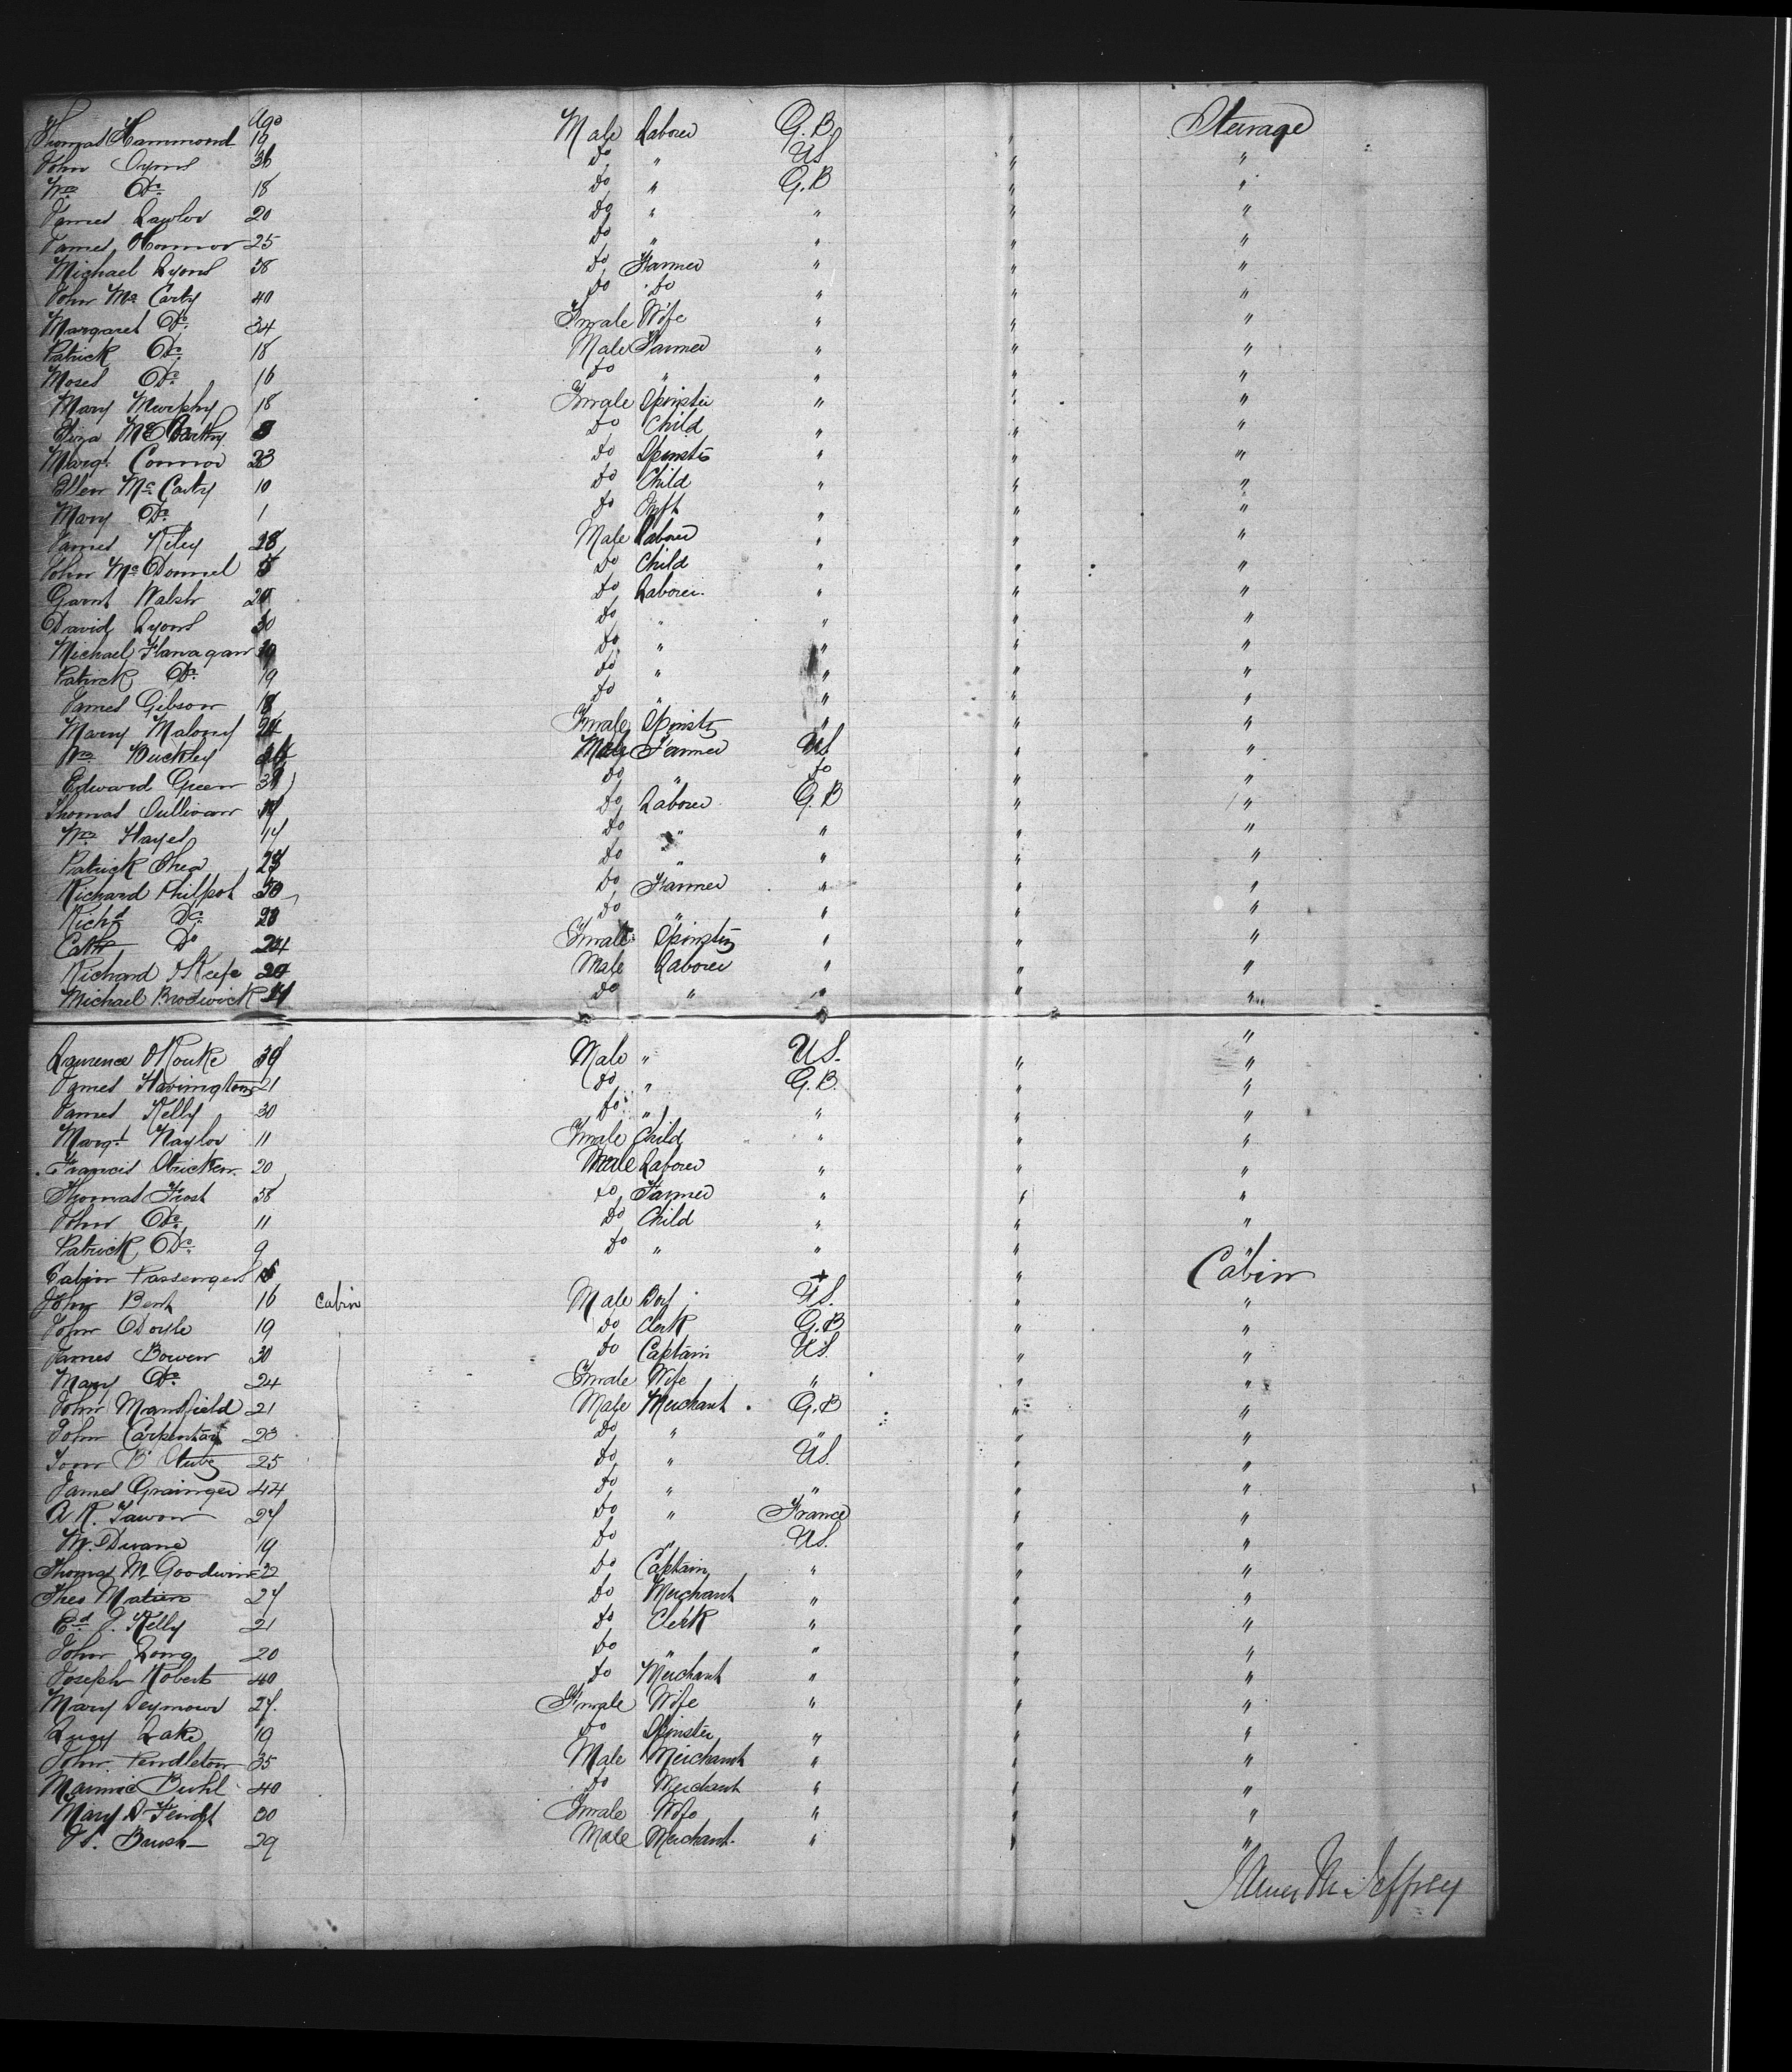 Age
Thomas Hammond 19 Male Laborer G.B. " Steerage
John Syms 36 do " US " "
Wm Do 18 do " G.B " "
James Lawlor 20 do " " " "
James OConnor 25 do " " " "
Michael Lyons 38 do Farmer " " "
John Mc Carty 40 do do " " "
Margaret Do 34 Female Wife " " "
Patrick Do 18 Male Farmer " " "
Moses Do 16 do " " " "
Mary Murphy 18 Female Spinster " " "
Eliza McCarthy do Child " " "
Margt Connor 23 do Spinster " " "
Ellen Mc Carty 10 do Child " " "
Mary Do 1 do Inft " " "
James Riley 28 Male Laborer " " "
John Mc Donnel 5 do Child " " "
Garnt Walsh do Laborer " " "
David Lyons 30 do " " " "
Michael Flanagan do " " " "
Patrick Do 19 do " " " "
James Gibson 18 do " " " "
Mary Malony Female Spinster " " "
Wm Buckley Male Farmer US " "
Edward Green do " do " "
Thomas Sullivan do Laborer G.B " "
Wm Hayes 17 do " " " "
Patrick Shea do " " " "
Richard Philpot 50 do Farmer " " "
Richd Do do " " " "
Cath Do 24 Female Spinster " " "
Richard OKeefe Male Laborer " " "
Michael Brodwick do " " " "
"
Lawrence ORouke Male " US. " "
James Havington 21 do " G.B. " "
James Kelly 30 do " " " "
Margt Naylor 11 Female Child " " "
Francis Stricken 20 Male Laborer " " "
Thomas Frost 38 do Farmer " " "
John Do 11 do Child " " "
Patrick Do 9 do " " " "
Cabin Passengers + " Cabin
John Bent 16 Cabin Male Boy US. " "
John Doyle 19 do Clerk G.B " "
James Bowen 30 do Captain US. " "
Mary Do 24 Female Wife " " "
John Mansfield 21 Male Merchant G.B " "
John Carpentar 23 do " " " "
25 do " US. " "
James Grainger 44 do " " " "
A R. Tawon 27 do " France " "
M. Duane 19 do " US. " "
Thomas M Goodwin 32 do Captain " " "
Theo Matien 27 do Merchant " " "
Ed J. Kelly 21 do Clerk " " "
John Long 20 do " " " "
Joseph Robert 40 do Merchant " " "
Mary Seymour 27. Female Wife " " "
Lucy Lake 19 do Spinster " " "
John Pendleton 35 Male Merchant " " "
Buhl 40 do Merchant " " "
Mary 30 Female Wife " " "
J S. Bush 29 Male Merchant. " " "
James M Jeffrey